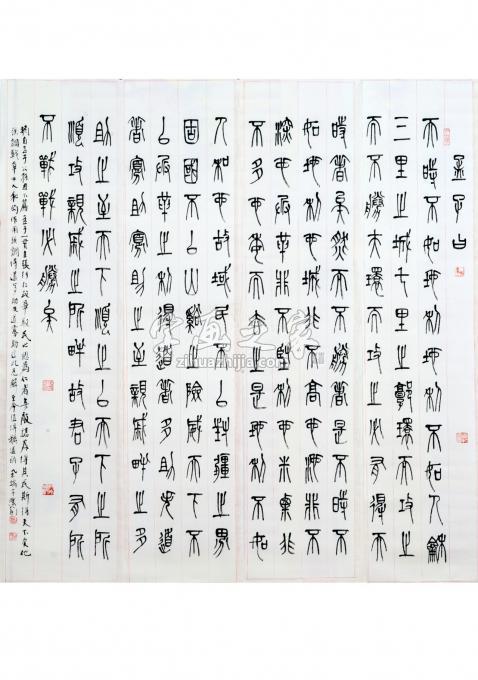 孟子曰
天時不如地利地利不如人龢
三里之城七里之郭環而攻之
而不勝夫環而攻之必有得天
時者矣然而不勝者是天時不
如地利也城非不高也池非不
深也兵革非不堅利也米粟非
不多也委而去之是地利不如
人和也故域民不以封疆之界
固國不以山谿之險威天下不
以兵革之利得道者多助失道
者寡助寡助之至親戚畔之多
助之至天下順之以天下之所
順攻親戚之所畔故君子有所
不戰戰必勝矣
字画之家
zihuazhijia.com